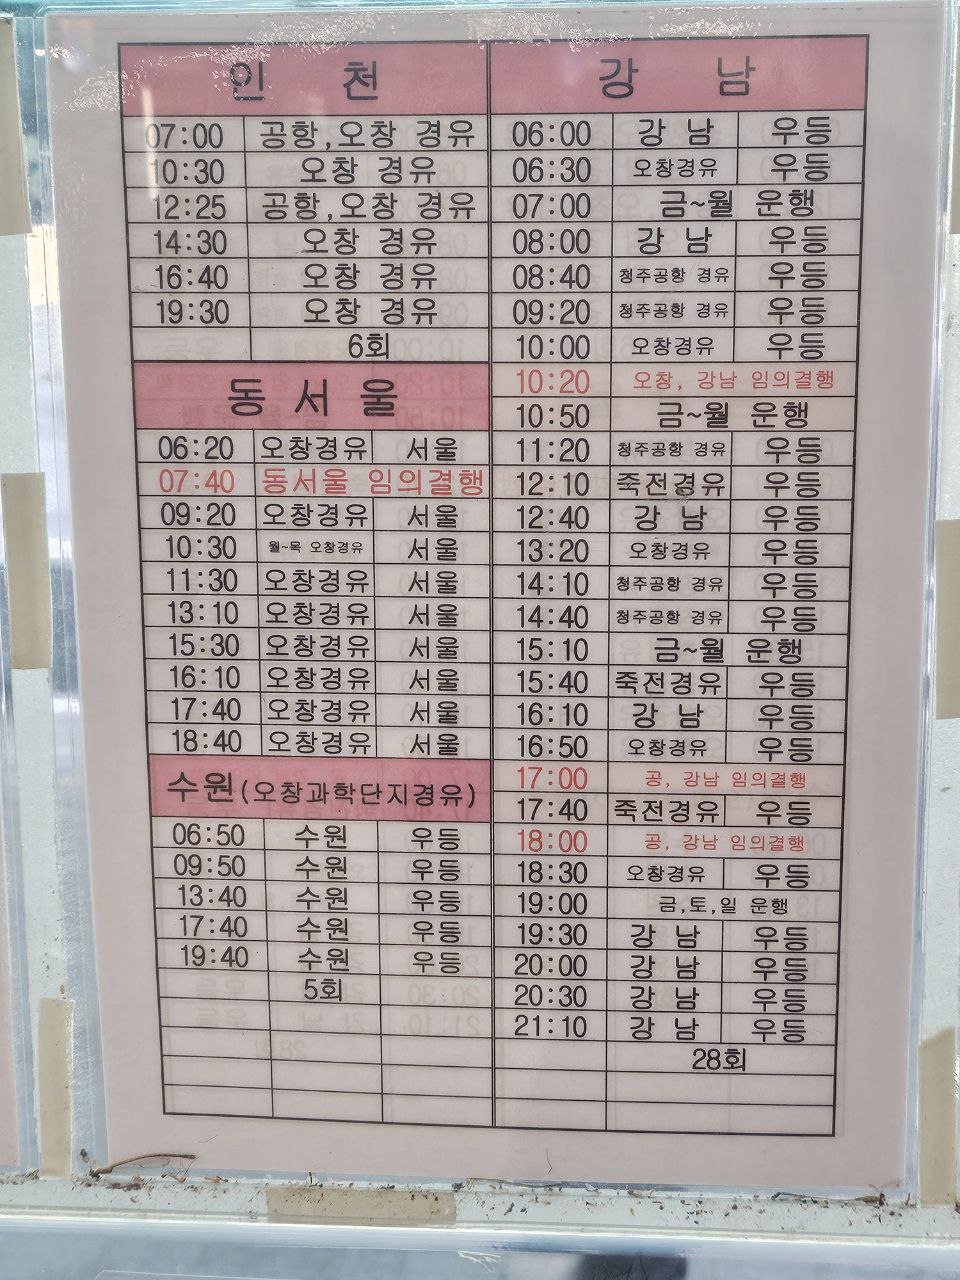 인 천
07:00 공항,오창 경유
10:30 오창 경유
12:25 공항,오창 경유
14:30 오창 경유
16:40 오창 경유
19:30 오창 경유
6회
동 서 울
06:20 오창경유 서울
07:40 동서울 임의결행
09:20 오창경유 서울
10:30 월~목 오창경유 서울
11:30 오창경유 서울
13:10 오창경유 서울
15:30 오창경유 서울
16:10 오창경유 서울
17:40 오창경유 서울
18:40 오창경유 서울
수원(오창과학단지경유)
06:50 수원 우등
09:50 수원 우등
13:40 수원 우등
17:40 수원 우등
19:40 수원 우등
5회
강 남
06:00 강 남 우등
06:30 오창경유 우등
07:00 금~월 운행
08:00 강 남 우등
08:40 청주공항 경유 우등
09:20 청주공항 경유 우등
10:00 오창경유 우등
10:20 오창, 강남 임의결행
10:50 금~월 운행
11:20 청주공항 경유 우등
12:10 죽전경유 우등
12:40 강 남 우등
13:20 오창경유 우등
14:10 청주공항 경유 우등
14:40 청주공항 경유 우등
15:10 금~월 운행
15:40 죽전경유 우등
16:10 강 남 우등
16:50 오창경유 우등
17:00 공, 강남 임의결행
17:40 죽전경유 우등
18:00 공, 강남 임의결행
18:30 오창경유 우등
19:00 금,토,일 운행
19:30 강 남 우등
20:00 강 남 우등
20:30 강 남 우등
21:10 강 남 우등
28회